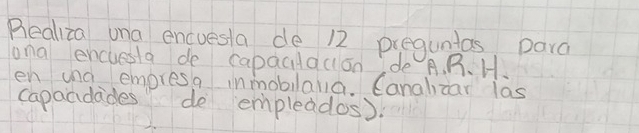 Realiza una encuesta de 12 preguntas para
una encuesta de capacitacion de A.R.H.
en una empresa inmobilaria. (analizar las
capacidades de empleados).